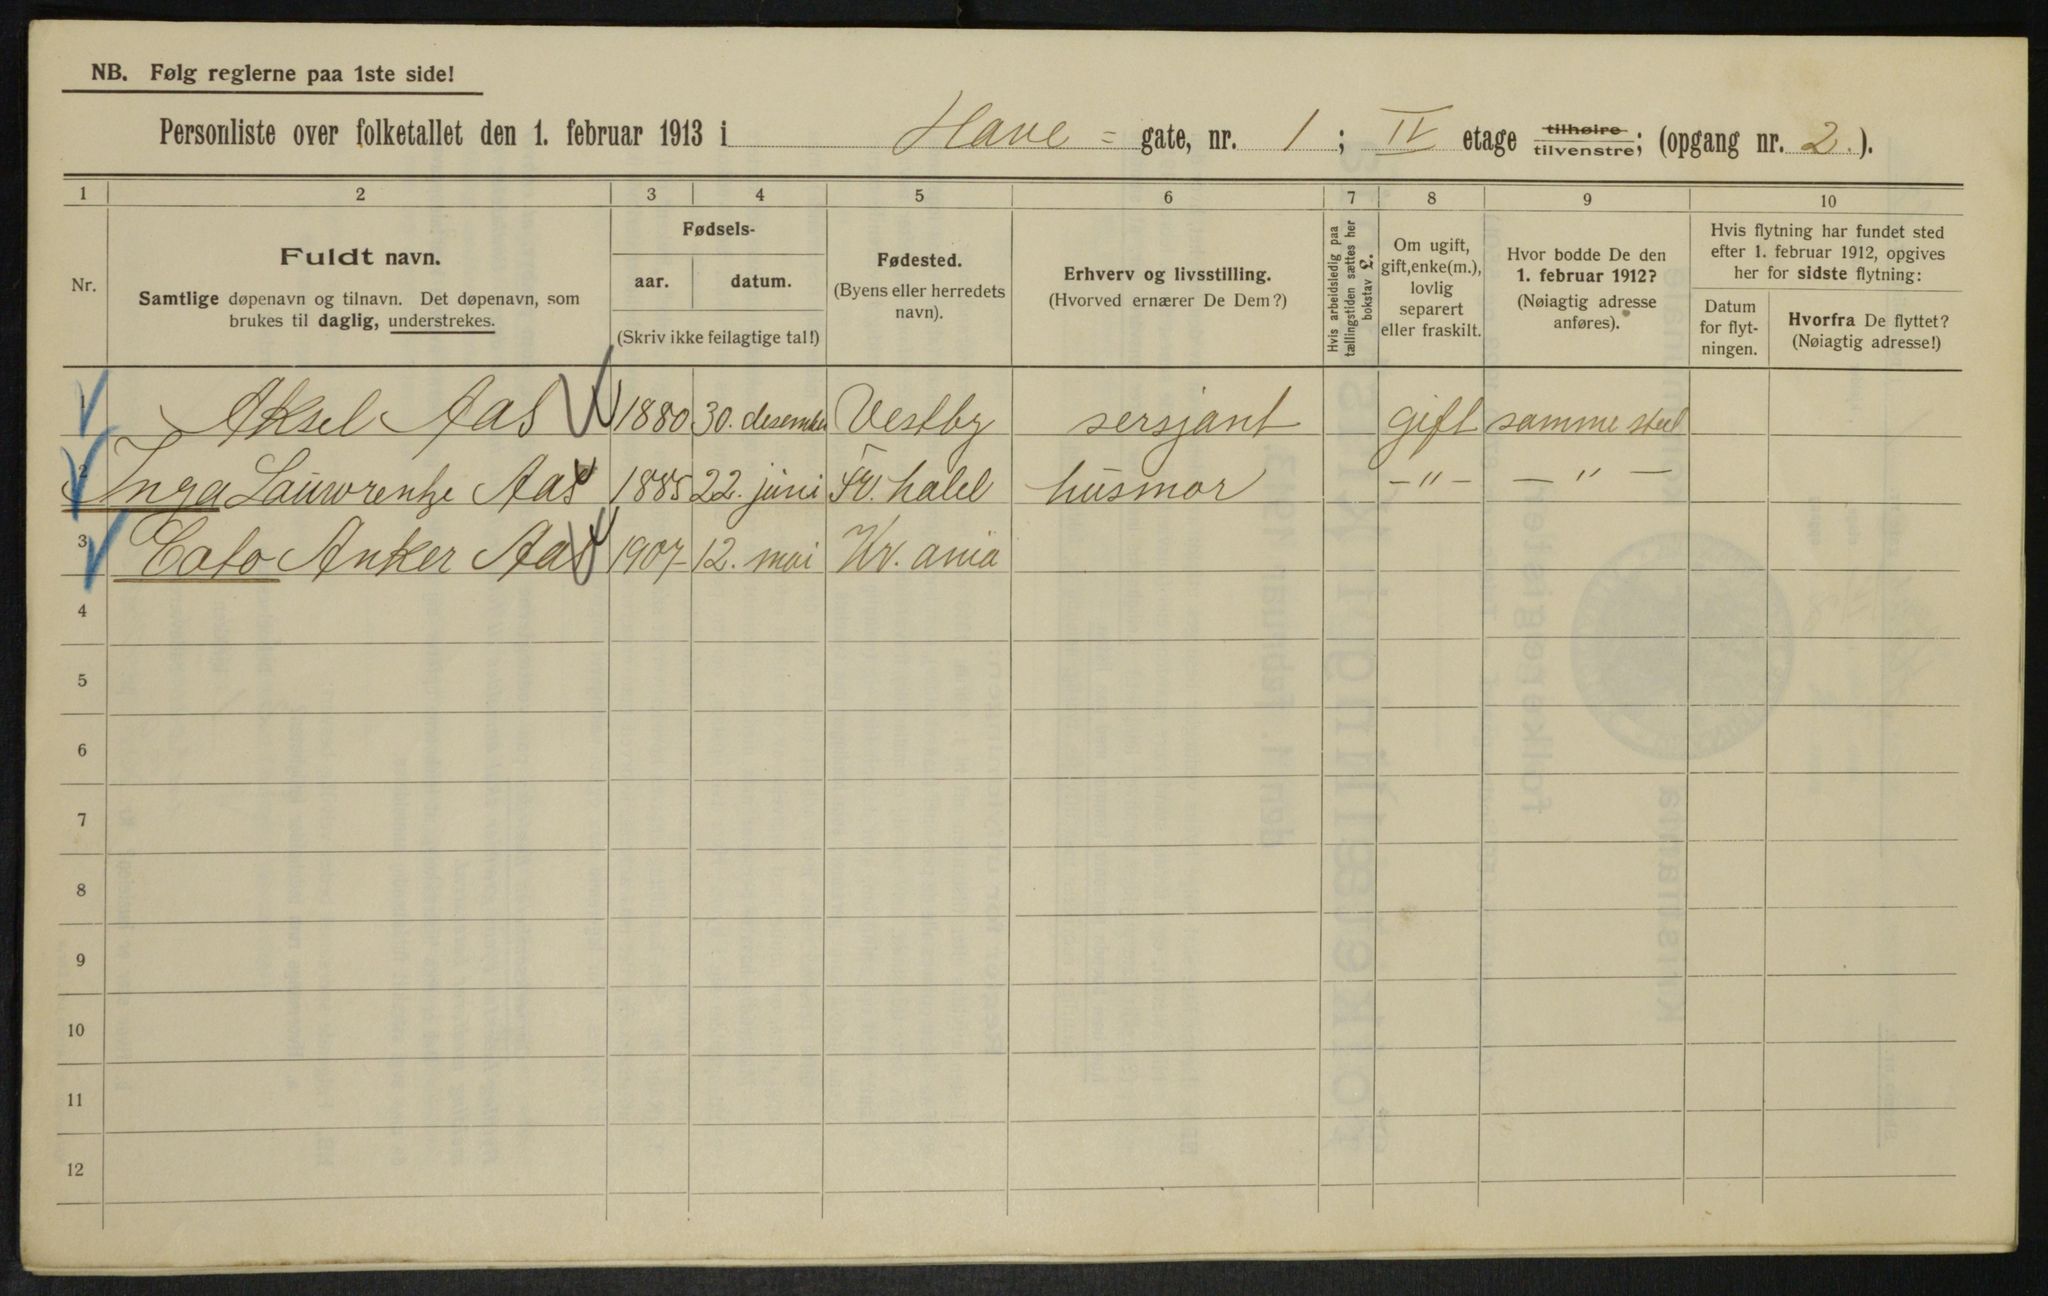 NB. Følg reglerne paa 1ste side!
Personliste over folketallet den 1. februar 1913 i Have = gate, nr. 1; IV etage tilhøire tilvenstre; (opgang nr. 2.).
1 2 3 4 5 6 7 8 9 10
Nr.
Fuldt navn.
Samtlige døpenavn og tilnavn. Det døpenavn, som
brukes til daglig, understrekes.
Fødsels-
aar. datum.
(Skriv ikke feilagtige tal!)
Fødested.
(Byens eller herredets
navn).
Erhverv og livsstilling.
(Hvorved ernærer De Dem?)
Hvis arbeidsledig paa
tællingstiden sættes her
bokstav L.
Om ugift,
gift, enke(m.),
lovlig
separert
eller fraskilt.
Hvor bodde De den
1. februar 1912?
(Nøiagtig adresse
anføres).
Hvis flytning har fundet sted
efter 1. februar 1912, opgives
her for sidste flytning:
Datum
for flyt-
ningen.
Hvorfra De flyttet?
(Nøiagtig adresse!)
1 Aksel Aas 1880 30. desember Vestby sersjant gift samme sted
2 Inga Lauwrentze Aas 1885 22. juni Fr. hald husmor - " - - " -
3 Cato Anker Aas 1907 12. mai Kr. ania
4
5
6
7
8
9
10
11
12